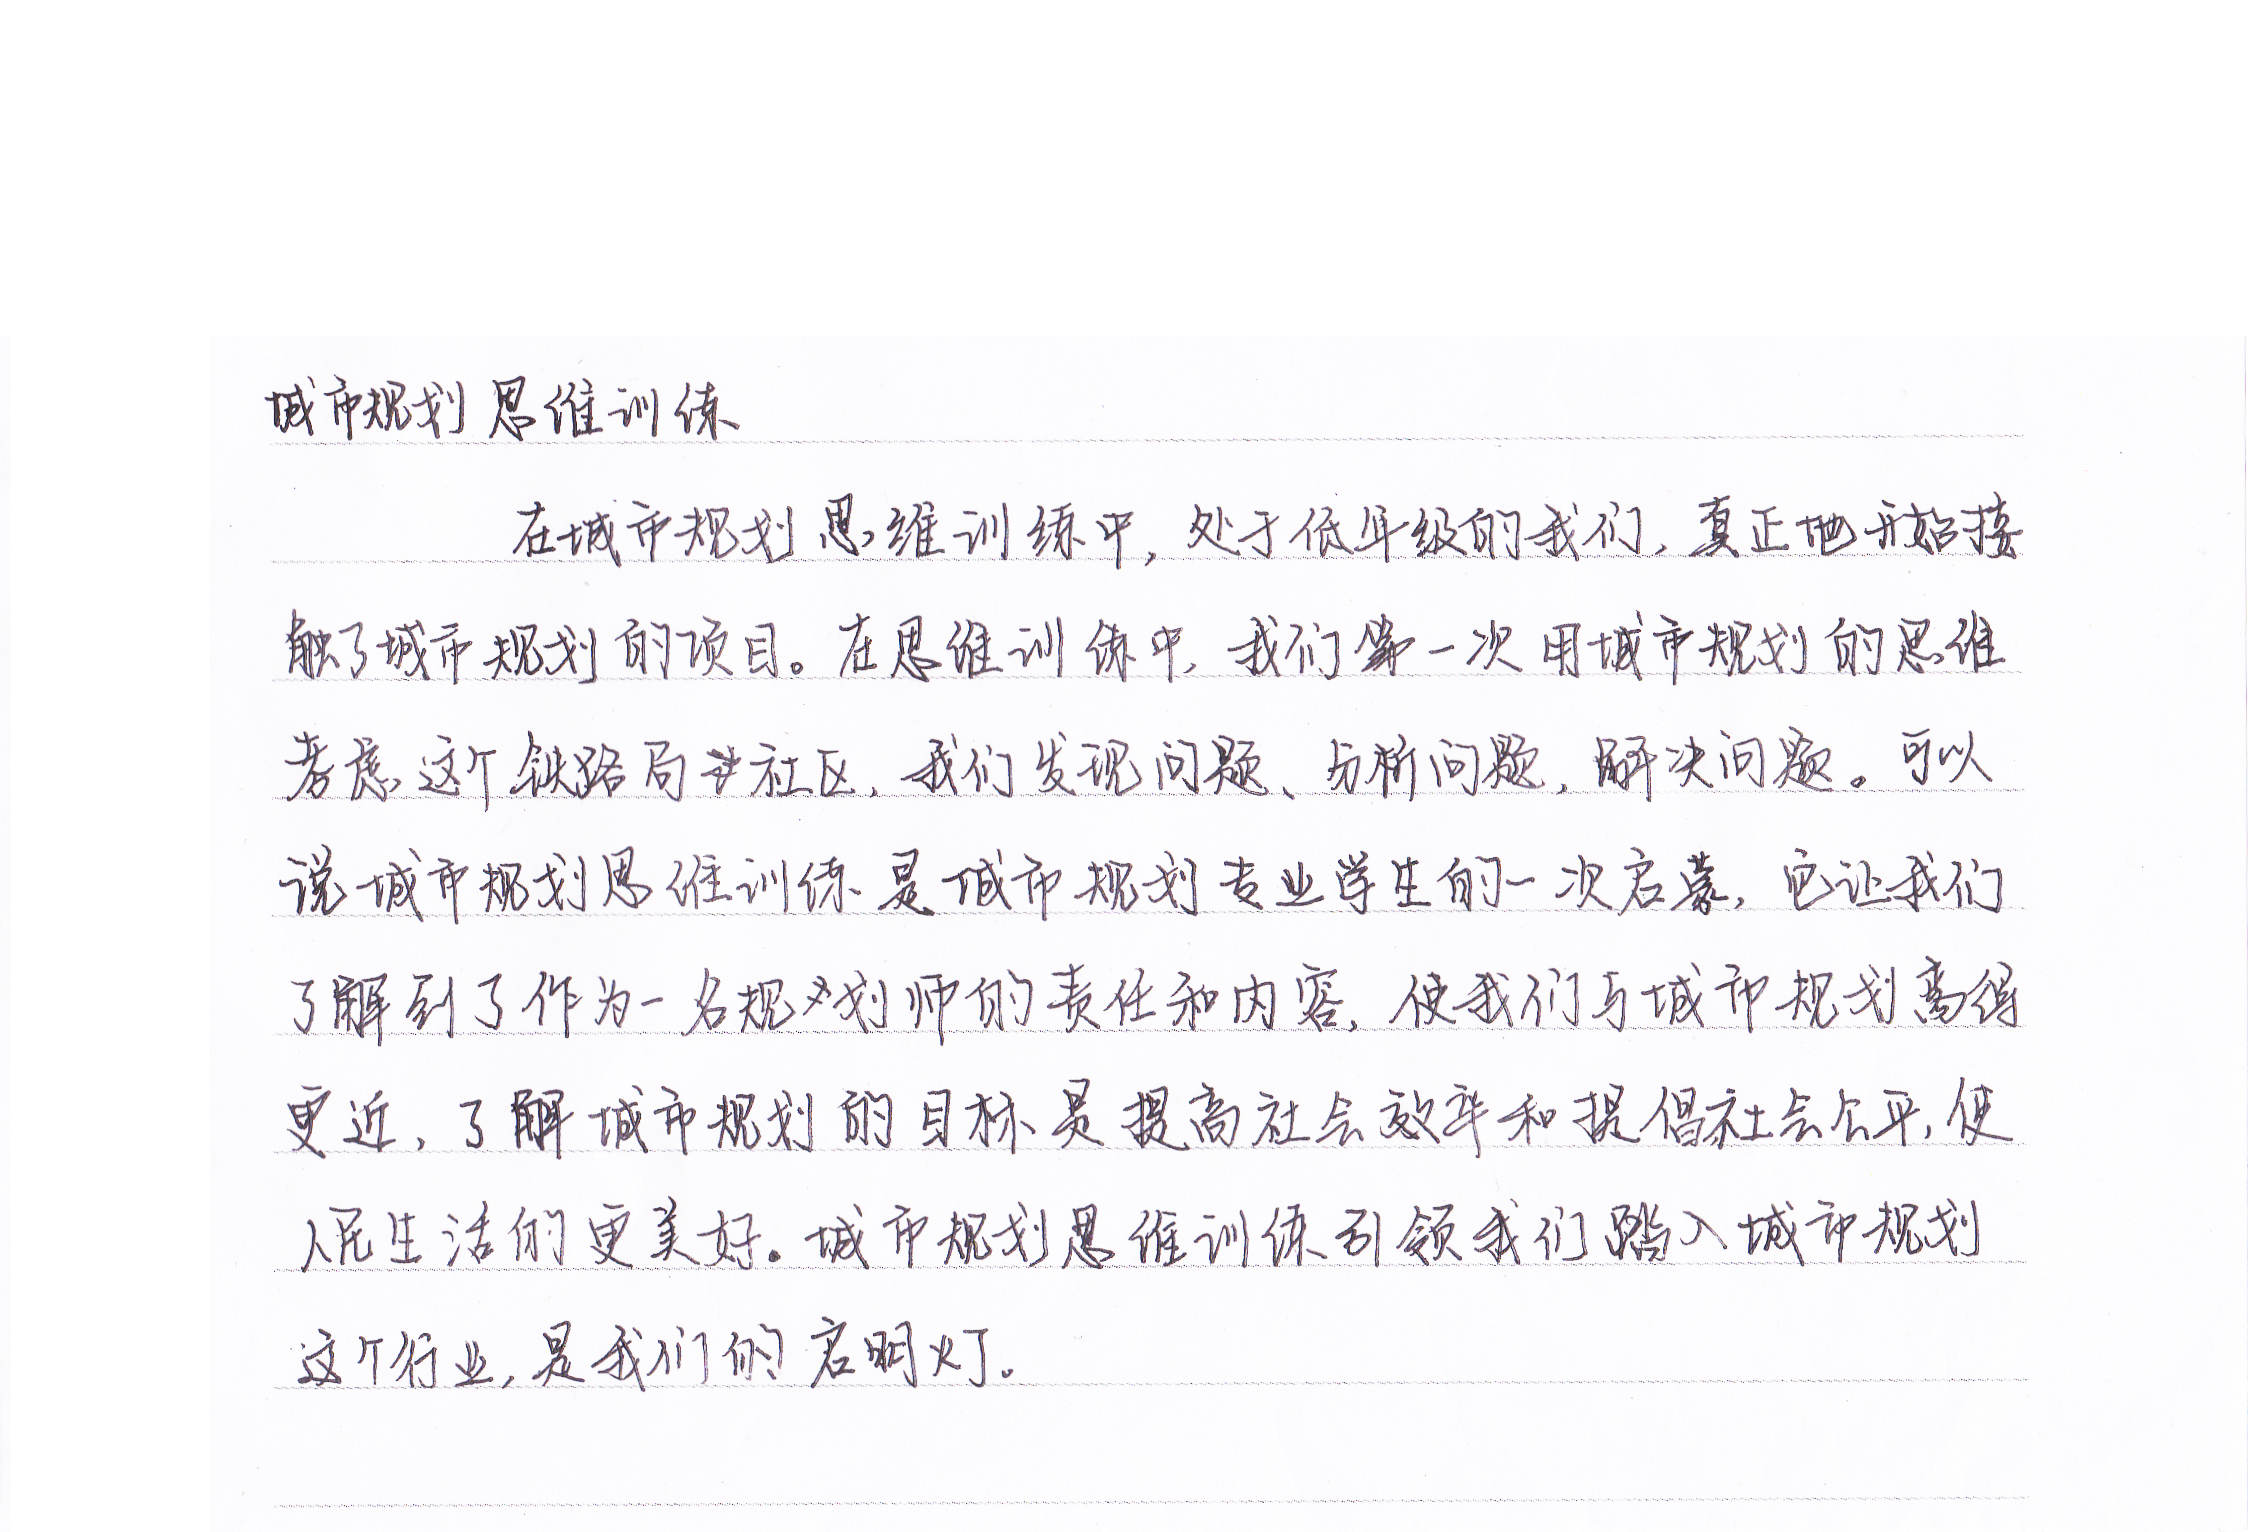 城市规划思维训练
在城市规划思维训练中，处于低年级的我们，真正地开始接
触了城市规划的项目。在思维训练中，我们第一次用城市规划的思维
考虑这个铁路局社区，我们发现问题、分析问题，解决问题。可以
说城市规划思维训练是城市规划专业学生的一次启蒙，它让我们
了解到了作为一名规划师的责任和内容，使我们与城市规划离得
更近，了解城市规划的目标是提高社会效率和提倡社会公平，使
人民生活的更美好。城市规划思维训练引领我们踏入城市规划
这个行业，是我们的启明灯。